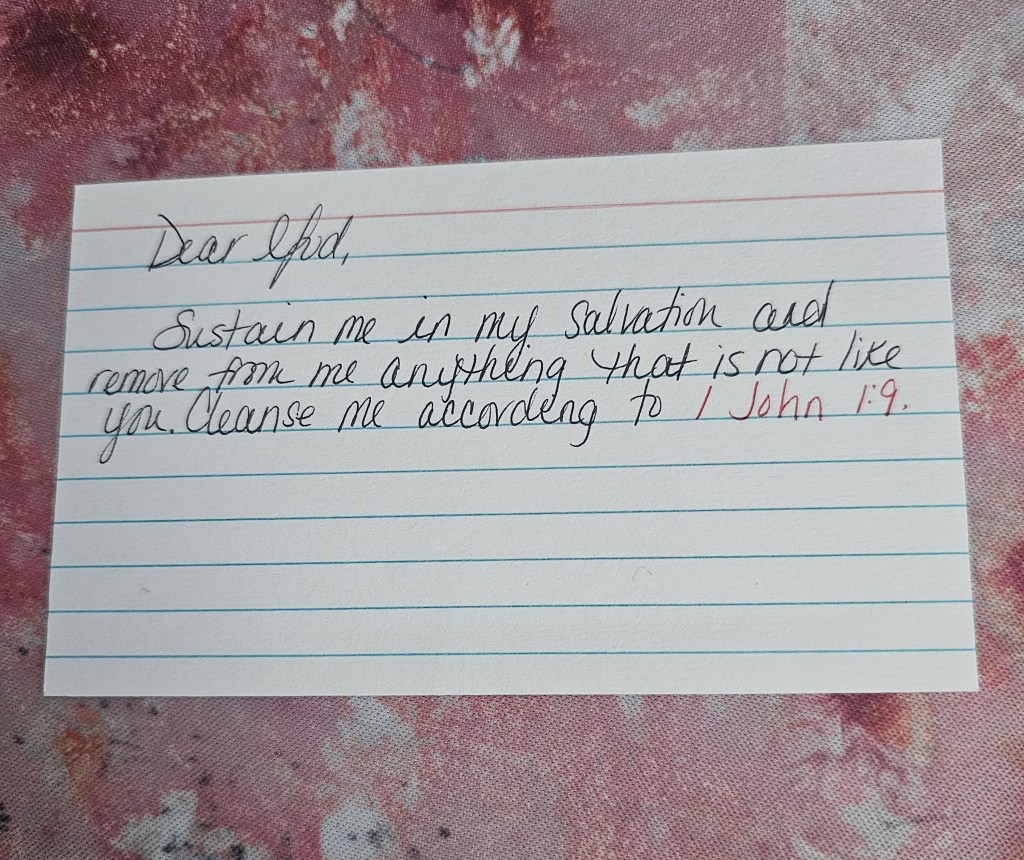 Dear God,
Sustain me in my salvation and
remove from me anything that is not like
you. Cleanse me according to 1 John 1:9.